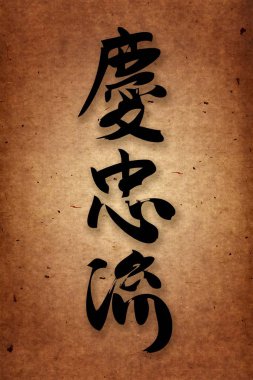 慶忠流